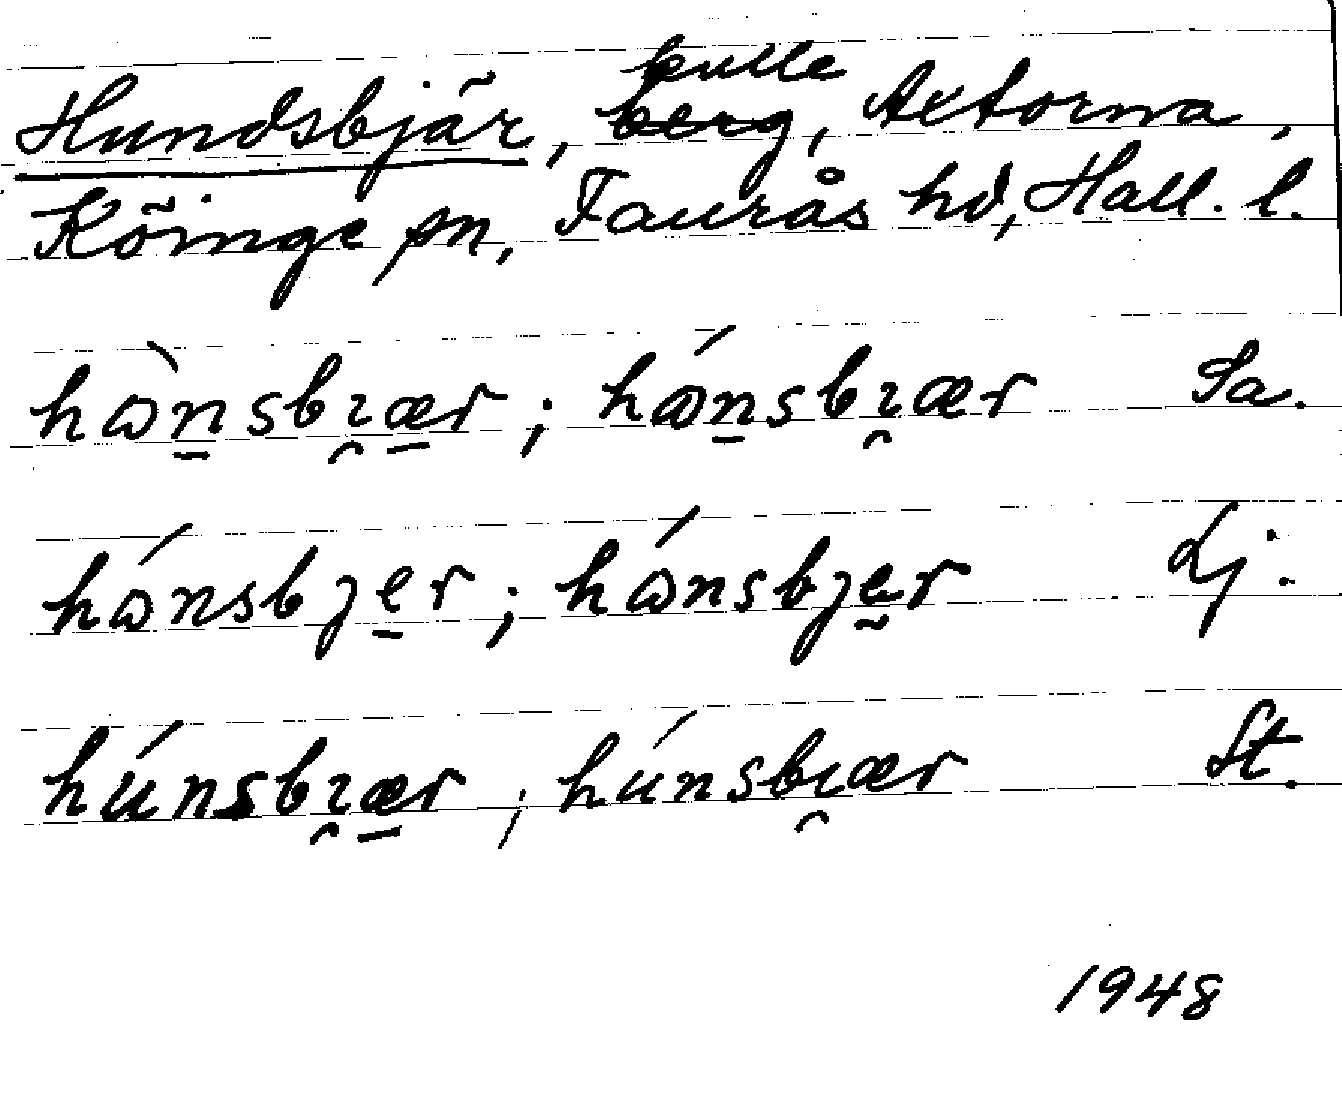 Hundsbjär, kulle berg, Axtorna,
Köinge sn, Faurås hd, Hall. l.
hɷ̀n̲sbı̯æ̲r ; hɷ́n̲sbı̯ær Sa.
hɷ́nsbȷe̲r ; hɷ́nsbȷḛr Lj.
húnsbı̯æ̲r ; húnsbı̯ær St.
1948